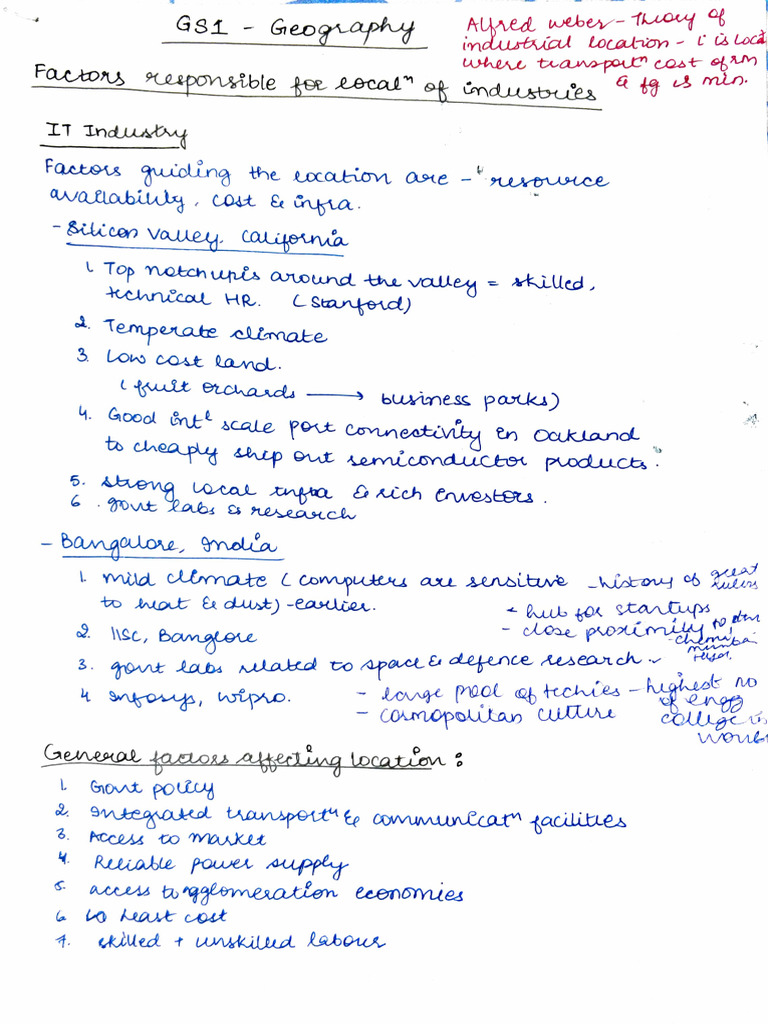 GS1 - Geography
Alfred Weber - Theory of
industrial location - i is loca
where transportⁿ cost of rm
& fg is min.
Factors responsible for localⁿ of industries
IT Industry
Factors guiding the location are - resource
availability, cost & infra.
- Silicon Valley, California
1. Top notch unis around the valley = skilled,
technical HR. (Stanford)
2. Temperate climate
3. Low cost land.
(fruit orchards ⟶ business parks)
4. Good intˡ scale port connectivity in Oakland
to cheaply ship out semiconductor products.
5. strong local infra & rich investors.
6. govt labs & research
- Bangalore, India
1. mild climate (computers are sensitive
to heat & dust) - earlier.
- history of great
rulers
- hub for startups
- close proximity to
2. IISC, Banglore
3. govt labs related to space & defence research.
4. Infosys, Wipro.
- large pool of techies - highest no
of engg
college in
world
- cosmopolitan culture
General factors affecting location :
1. Govt policy
2. Integrated transportⁿ & communicatⁿ facilities
3. Access to market
4. Reliable power supply
5. access to agglomeration economies
6. least cost
7. skilled + unskilled labour